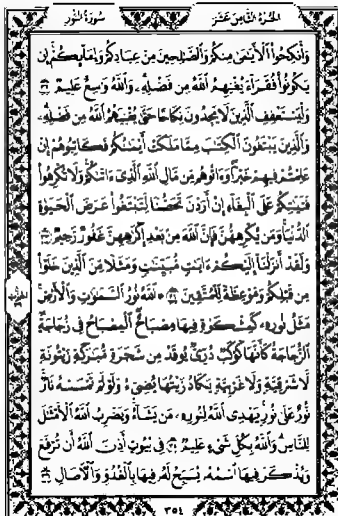 الجزء الثامن عشر
سورة النور
وَأَنكِحُوا۟ ٱلْأَيَـٰمَىٰ مِنكُمْ وَٱلصَّـٰلِحِينَ مِنْ عِبَادِكُمْ وَإِمَآئِكُمْ إِن
يَكُونُوا۟ فُقَرَآءَ يُغْنِهِمُ ٱللَّهُ مِن فَضْلِهِۦ وَٱللَّهُ وَٰسِعٌ عَلِيمٌ ٣٢
وَلْيَسْتَعْفِفِ ٱلَّذِينَ لَا يَجِدُونَ نِكَاحًا حَتَّىٰ يُغْنِيَهُمُ ٱللَّهُ مِن فَضْلِهِۦ
وَٱلَّذِينَ يَبْتَغُونَ ٱلْكِتَـٰبَ مِمَّا مَلَكَتْ أَيْمَـٰنُكُمْ فَكَاتِبُوهُمْ إِنْ
عَلِمْتُمْ فِيهِمْ خَيْرًا وَءَاتُوهُم مِّن مَّالِ ٱللَّهِ ٱلَّذِىٓ ءَاتَىٰكُمْ وَلَا تُكْرِهُوا۟
فَتَيَـٰتِكُمْ عَلَى ٱلْبِغَآءِ إِنْ أَرَدْنَ تَحَصُّنًا لِّتَبْتَغُوا۟ عَرَضَ ٱلْحَيَوٰةِ
ٱلدُّنْيَا وَمَن يُكْرِههُّنَّ فَإِنَّ ٱللَّهَ مِنۢ بَعْدِ إِكْرَٰهِهِنَّ غَفُورٌ رَّحِيمٌ ٣٣
وَلَقَدْ أَنزَلْنَآ إِلَيْكُمْ ءَايَـٰتٍ مُّبَيِّنَـٰتٍ وَمَثَلًا مِّنَ ٱلَّذِينَ خَلَوْا۟
مِن قَبْلِكُمْ وَمَوْعِظَةً لِّلْمُتَّقِينَ ٣٤ ۞ ٱللَّهُ نُورُ ٱلسَّمَـٰوَٰتِ وَٱلْأَرْضِ
مَثَلُ نُورِهِۦ كَمِشْكَوٰةٍ فِيهَا مِصْبَاحٌ ٱلْمِصْبَاحُ فِى زُجَاجَةٍ
ٱلزُّجَاجَةُ كَأَنَّهَا كَوْكَبٌ دُرِّىٌّ يُوقَدُ مِن شَجَرَةٍ مُّبَـٰرَكَةٍ زَيْتُونَةٍ
لَّا شَرْقِيَّةٍ وَلَا غَرْبِيَّةٍ يَكَادُ زَيْتُهَا يُضِىٓءُ وَلَوْ لَمْ تَمْسَسْهُ نَارٌ
نُّورٌ عَلَىٰ نُورٍ يَهْدِى ٱللَّهُ لِنُورِهِۦ مَن يَشَآءُ وَيَضْرِبُ ٱللَّهُ ٱلْأَمْثَـٰلَ
لِلنَّاسِ وَٱللَّهُ بِكُلِّ شَىْءٍ عَلِيمٌ ٣٥ فِى بُيُوتٍ أَذِنَ ٱللَّهُ أَن تُرْفَعَ
وَيُذْكَرَ فِيهَا ٱسْمُهُۥ يُسَبِّحُ لَهُۥ فِيهَا بِٱلْغُدُوِّ وَٱلْـَٔاصَالِ ٣٦
٣٥٤